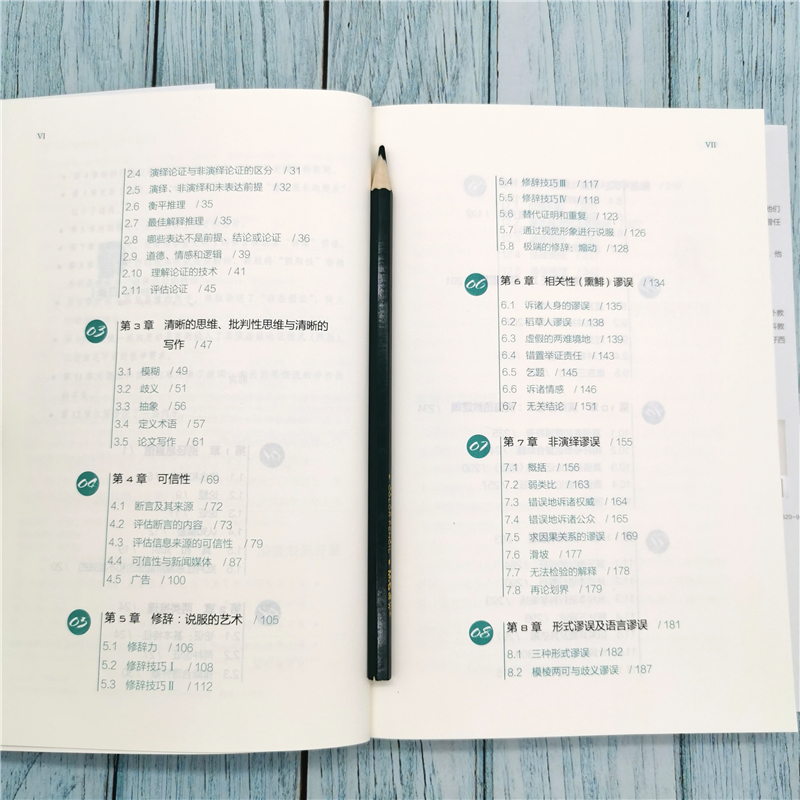 VI
2.4 演绎论证与非演绎论证的区分 / 31
2.5 演绎、非演绎和未表达前提 / 32
2.6 衡平推理 / 35
2.7 最佳解释推理 / 35
2.8 哪些表达不是前提、结论或论证 / 36
2.9 道德、情感和逻辑 / 39
2.10 理解论证的技术 / 41
2.11 评估论证 / 45
03 第3章 清晰的思维、批判性思维与清晰的
写作 / 47
3.1 模糊 / 49
3.2 歧义 / 51
3.3 抽象 / 56
3.4 定义术语 / 57
3.5 论文写作 / 61
04 第4章 可信性 / 69
4.1 断言及其来源 / 72
4.2 评估断言的内容 / 73
4.3 评估信息来源的可信性 / 79
4.4 可信性与新闻媒体 / 87
4.5 广告 / 100
05 第5章 修辞：说服的艺术 / 105
5.1 修辞力 / 106
5.2 修辞技巧Ⅰ / 108
5.3 修辞技巧Ⅱ / 112
VII
5.4 修辞技巧Ⅲ / 117
5.5 修辞技巧Ⅳ / 118
5.6 替代证明和重复 / 123
5.7 通过视觉形象进行说服 / 126
5.8 极端的修辞：煽动 / 128
06 第6章 相关性（熏鲱）谬误 / 134
6.1 诉诸人身的谬误 / 135
6.2 稻草人谬误 / 138
6.3 虚假的两难境地 / 139
6.4 错置举证责任 / 143
6.5 乞题 / 145
6.6 诉诸情感 / 146
6.7 无关结论 / 151
07 第7章 非演绎谬误 / 155
7.1 概括 / 156
7.2 弱类比 / 163
7.3 错误地诉诸权威 / 164
7.4 错误地诉诸公众 / 165
7.5 求因果关系的谬误 / 169
7.6 滑坡 / 177
7.7 无法检验的解释 / 178
7.8 再论划界 / 179
08 第8章 形式谬误及语言谬误 / 181
8.1 三种形式谬误 / 182
8.2 模棱两可与歧义谬误 / 187